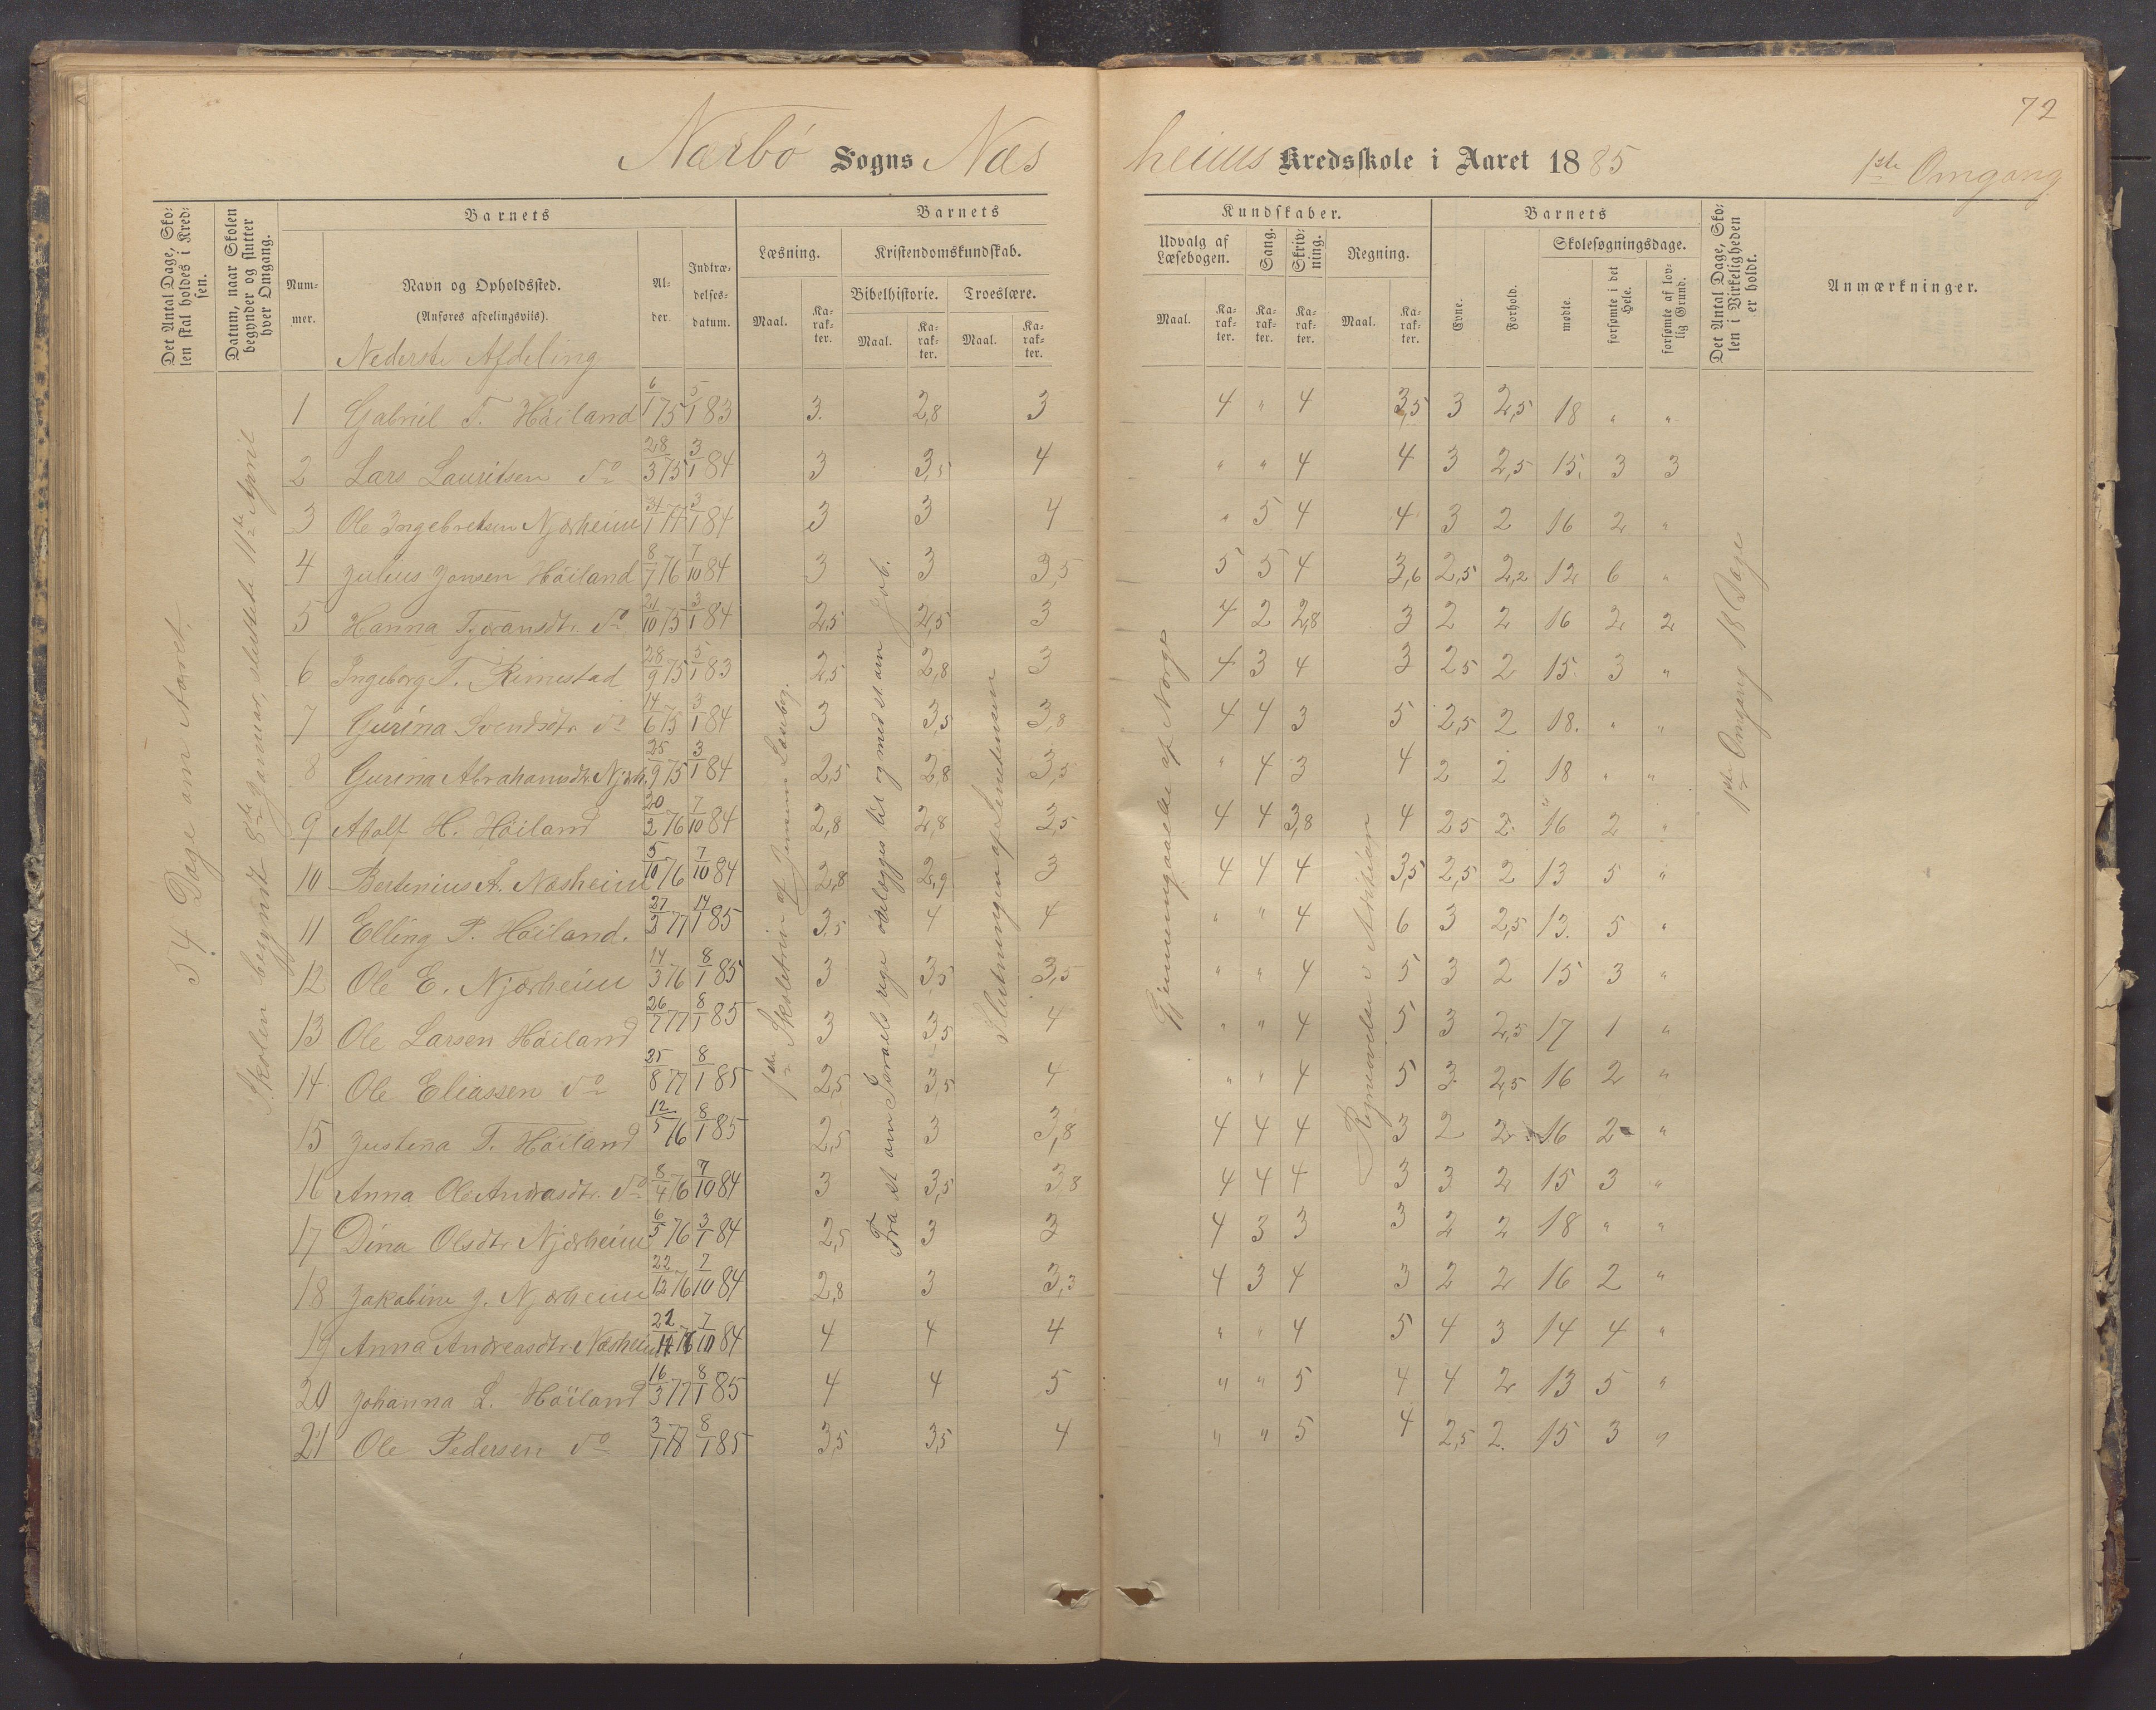 72
Nærbö Sogns Næsheims Kredsskole i Aaret 1885 1ste Omgang
Det Antal Dage, Skolen skal holdes i Kredsen.
Datum, naar Skolen begynder og slutter hver Omgang.
Barnets
Nummer.
Navn og Opholdssted.
(Anføres afdelingsvis).
Alder.
Indtrædelsesdatum.
Barnets Kundskaber.
Læsning. Kristendomskundskab. Udvalg af Læsebogen. Sang. Skrivning. Regning.
Bibelhistorie. Troeslære.
Maal. Karakter. Maal. Karakter. Maal. Karakter. Maal. Karakter. Karakter. Karakter. Maal. Karakter.
Barnets
Evne. Forhold. Skolesøgningsdage.
mødte. forsømte i det Hele. forsømte af lovlig Grund.
Det Antal Dage, Skolen i Virkeligheden er holdt.
Anmærkninger.
Nederste Afdeling
54 Dage om Aaret.
Skolen begyndt 8de Januar, sluttet 11te April
1ste Skoletrin af Jensens Læsebog.
Fra at om Israels rige ödelægges til og med st om Job.
Slutningen af Sennetensen
Gjennemgaaelse af Norge
Regneøvelse i
1ste Omgang 18 Dage
1 Gabriel T. Höiland 6/1 75 5/1 83 3. 2,8 3 4 " 4 3,5 3 2,5 18 " "
2 Lars Lauritsen do 28/3 75 3/1 84 3 3,5 4 " " 4 4 3 2,5 15. 3 3
3 Ole Ingebretsen Njærheim 3/1 84 3 3 4 " 5 4 4 3 2 16 2 "
4 Julius Jonsen Höiland 8/7 76 7/10 84 3 3 3,5 5 5 4 3,6 2,5 2,2 12 6 "
5 Hanna Tjöransdtr. do 21/10 75 3/1 84 2,5 2,5 3 4 2 2,8 3 2 2 16 2 2
6 Ingeborg T. Rimestad 28/9 75 5/1 83 2,5 2,8 3 4 3 4 3 2,5 2 15. 3 "
7 Gurina Svendsdtr do 14/6 75 3/1 84 3 3,5 3,8 4 4 3 5 2,5 2 18. " "
8 Gurina Abrahamsdtr. Njærh. 25/9 75 3/1 84 2,5 2,8 3,5 " 4 3 4 2 2 18 " "
9 Adolf H. Höiland 20/2 76 7/10 84 2,8 2,8 3,5 4 4 3,8 4 2,5 2. 16 2 "
10 Bertinius A. Næsheim 5/10 76 7/10 84 2,8 2,9 3 4 4 4 3,5 2,5 2 13 5 "
11 Elling P. Höiland. 27/3 77 14/1 85 3,5 4 4 " " 4 6 3 2,5 13. 5 "
12 Ole E. Njærheim 14/3 76 8/1 85 3 3,5 3,5 " " 4 5 3 2 15 3 "
13 Ole Larsen Höiland 26/7 77 8/1 85 3 3,5 4 " " 4 5 3 2,5 17 1 "
14 Ole Eliassen do 25/8 77 8/1 85 2,5 3,5 4 " " 4 5 3 2,5 16 2 "
15 Justina T. Höiland 12/5 76 8/1 85 2,5 3 3,8 4 4 4 3 2 2 16 2 "
16 Anna Ole Andrasdtr. do 8/4 76 7/10 84 3 3,5 3,8 4 4 4 3 3 2 15 3 "
17 Dina Olsdtr Njærheim 6/5 76 3/1 84 2,5 3 3 4 3 3 3 2 2 18 " "
18 Jakobine J. Njærheim 22/12 76 7/10 84 2,8 3 3,3 4 3 4 3 2 2 16 2 "
19 Anna Andreasdtr. Næsheim 76 7/10 84 4 4 4 " " 4 5 4 3 14 4 "
20 Johanna L. Höiland 16/3 77 8/1 85 4 4 5 " " 5 4 4 2 13 5 "
21 Ole Pedersen do 3/1 78 8/1 85 3,5 3,5 4 " " 5 4 2,5 2. 15 3 "